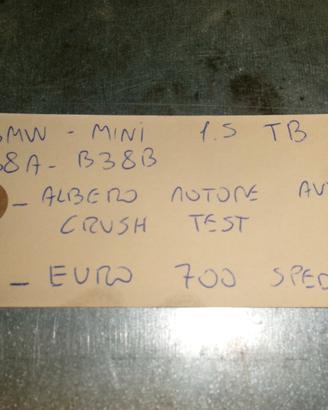 BMW - MINI 1.5 TB
38A - B38B
- ALBERO MOTORE AV
CRUSH TEST
- EURO 700 SPED